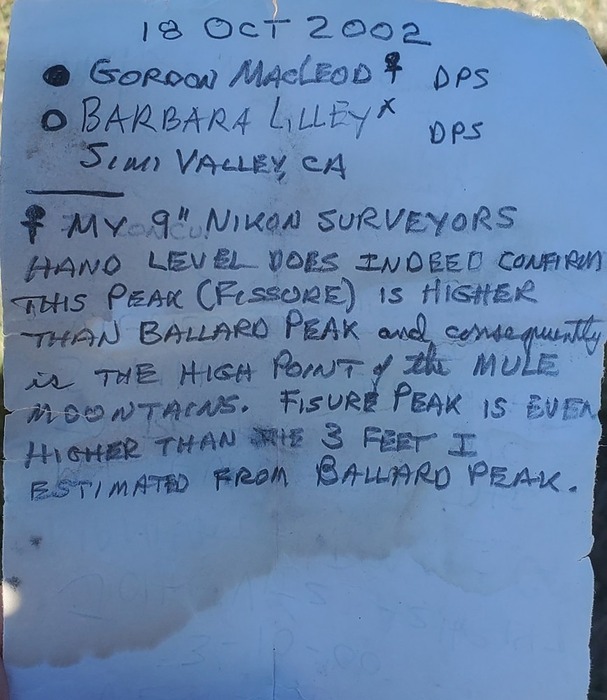 18 OCT 2002
● GORDON MACLEOD ♀ DPS
O BARBARA LILLEY x DPS
SIMI VALLEY, CA
♀ MY 9" NIKON SURVEYORS
HAND LEVEL DOES INDEED CONFIRM
THIS PEAK (FISSURE) IS HIGHER
THAN BALLARD PEAK and consequently
is THE HIGH POINT of the MULE
MOUNTAINS. FISURE PEAK IS EVEN
HIGHER THAN THE 3 FEET I
ESTIMATED FROM BALLARD PEAK.